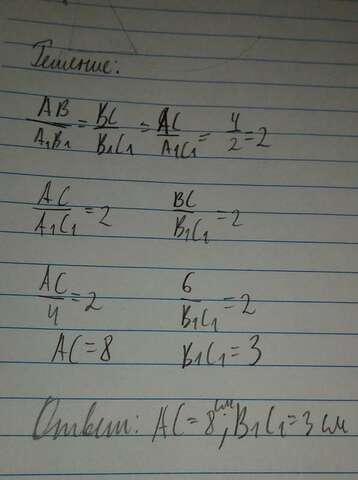 Решение:
AB/A₁B₁ = BC/B₁C₁ = AC/A₁C₁ = 4/2 = 2
AC/A₁C₁ = 2 BC/B₁C₁ = 2
AC/4 = 2 6/B₁C₁ = 2
AC = 8 B₁C₁ = 3
Ответ: AC = 8 см, B₁C₁ = 3 см